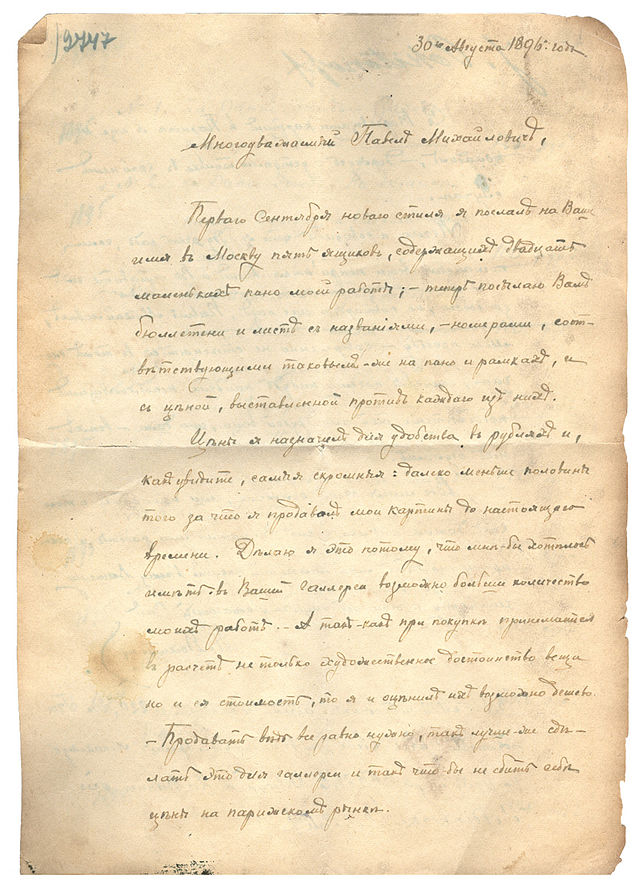 2747
30го Августа 1896 годъ
Многоуважаемый Павелъ Михайловичъ,
Перваго Сентября новаго стиля я послалъ на Ваше
имя въ Москву пять ящиковъ, содержащихъ двадцать
маленькихъ пано моей работы; – теперь посылаю Вамъ
бюллетени и листъ съ названіями, – номерами, соот-
вѣтствующими таковымъ-же на пано и рамкахъ, и
съ цѣной, выставленной противъ каждаго изъ нихъ.
Цѣны я назначилъ для удобства въ рубляхъ и,
какъ увидите, самыя скромныя: далеко меньше половины
того за что я продавалъ мои картины до настоящаго
времени. Дѣлаю я это потому, что мнѣ-бы хотѣлось
имѣть въ Вашей Галлереи возможно больше количество
моихъ работъ. – А такъ-какъ при покупкѣ принимается
въ расчетъ не только художественное достоинство вещи
но и ея стоимость, то я и оцѣнилъ ихъ возможно дешево.
– Продавать вѣдь все равно нужно, такъ лучше-же сдѣ-
лать это для галлереи и такъ что-бы не сбить себѣ
цѣны на парижскомъ рынкѣ.